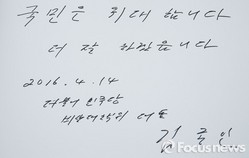 국민은 위대 합니다
더 잘 하겠습니다
2016. 4. 14
더불어 민주당
비상대책위 대표
김 종 인
Focusnews